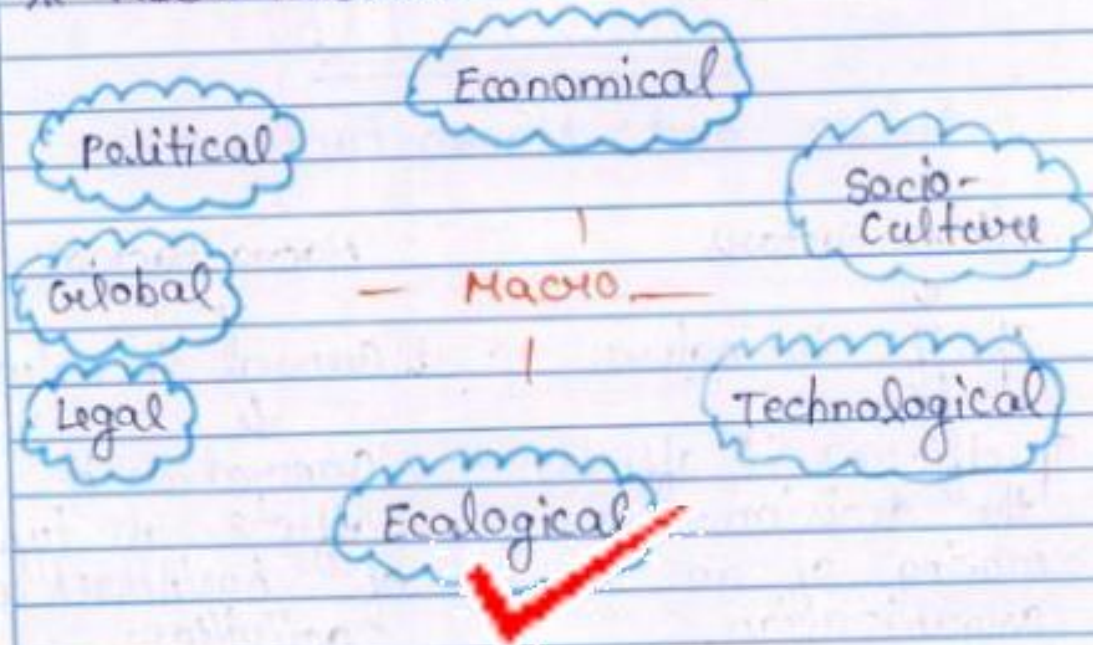 Economical
Political
Socio-
Culture
Global
Macro
Legal
Technological
Ecological